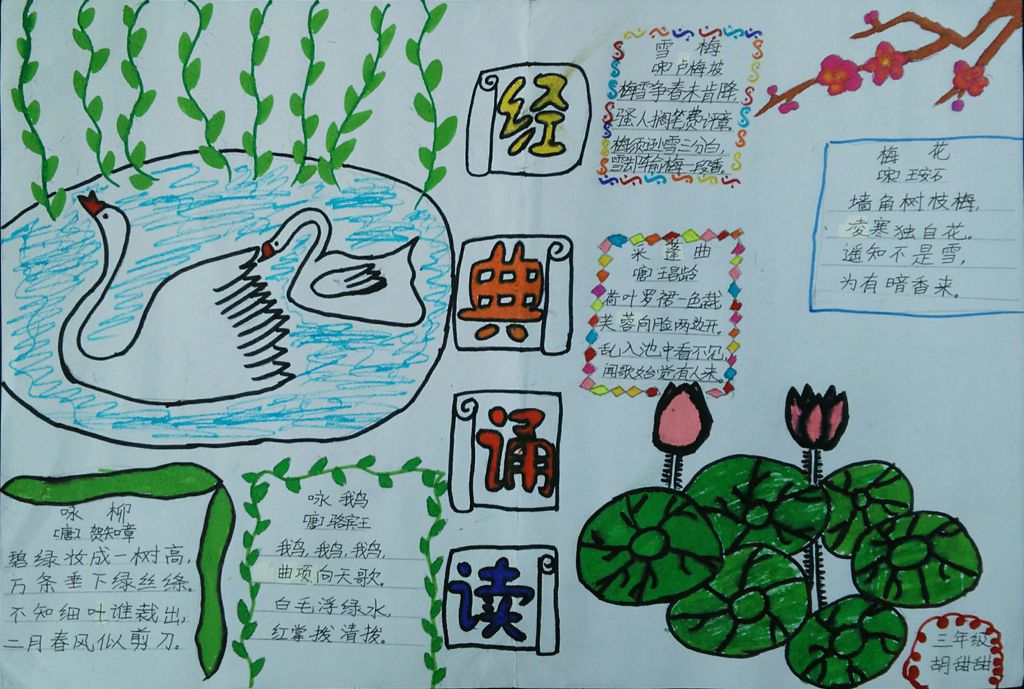 经典诵读
雪 梅
[宋] 卢梅坡
梅雪争春未肯降,
骚人搁笔费评章。
梅须逊雪三分白,
雪却输梅一段香。
梅 花
[宋] 王安石
墙角树枝梅,
凌寒独自花。
遥知不是雪,
为有暗香来。
采 蓬 曲
[唐] 王昌龄
荷叶罗裙一色裁
芙蓉向脸两边开。
乱入池中看不见,
闻歌始觉有人来。
咏 柳
[唐] 贺知章
碧绿妆成一树高,
万条垂下绿丝绦。
不知细叶谁裁出,
二月春风似剪刀。
咏 鹅
[唐] 骆宾王
鹅,鹅,鹅,
曲项向天歌。
白毛浮绿水,
红掌拨清拨。
三年级
胡甜甜